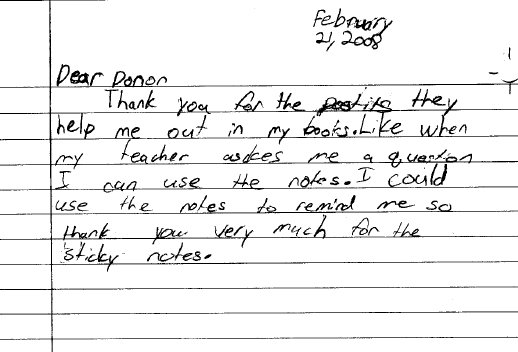 February
21, 2008
Dear Donor
Thank you for the they
help me out in my books. Like when
my teacher asckes me a question
I can use the notes. I could
use the notes to remind me so
thank you very much for the
sticky notes.